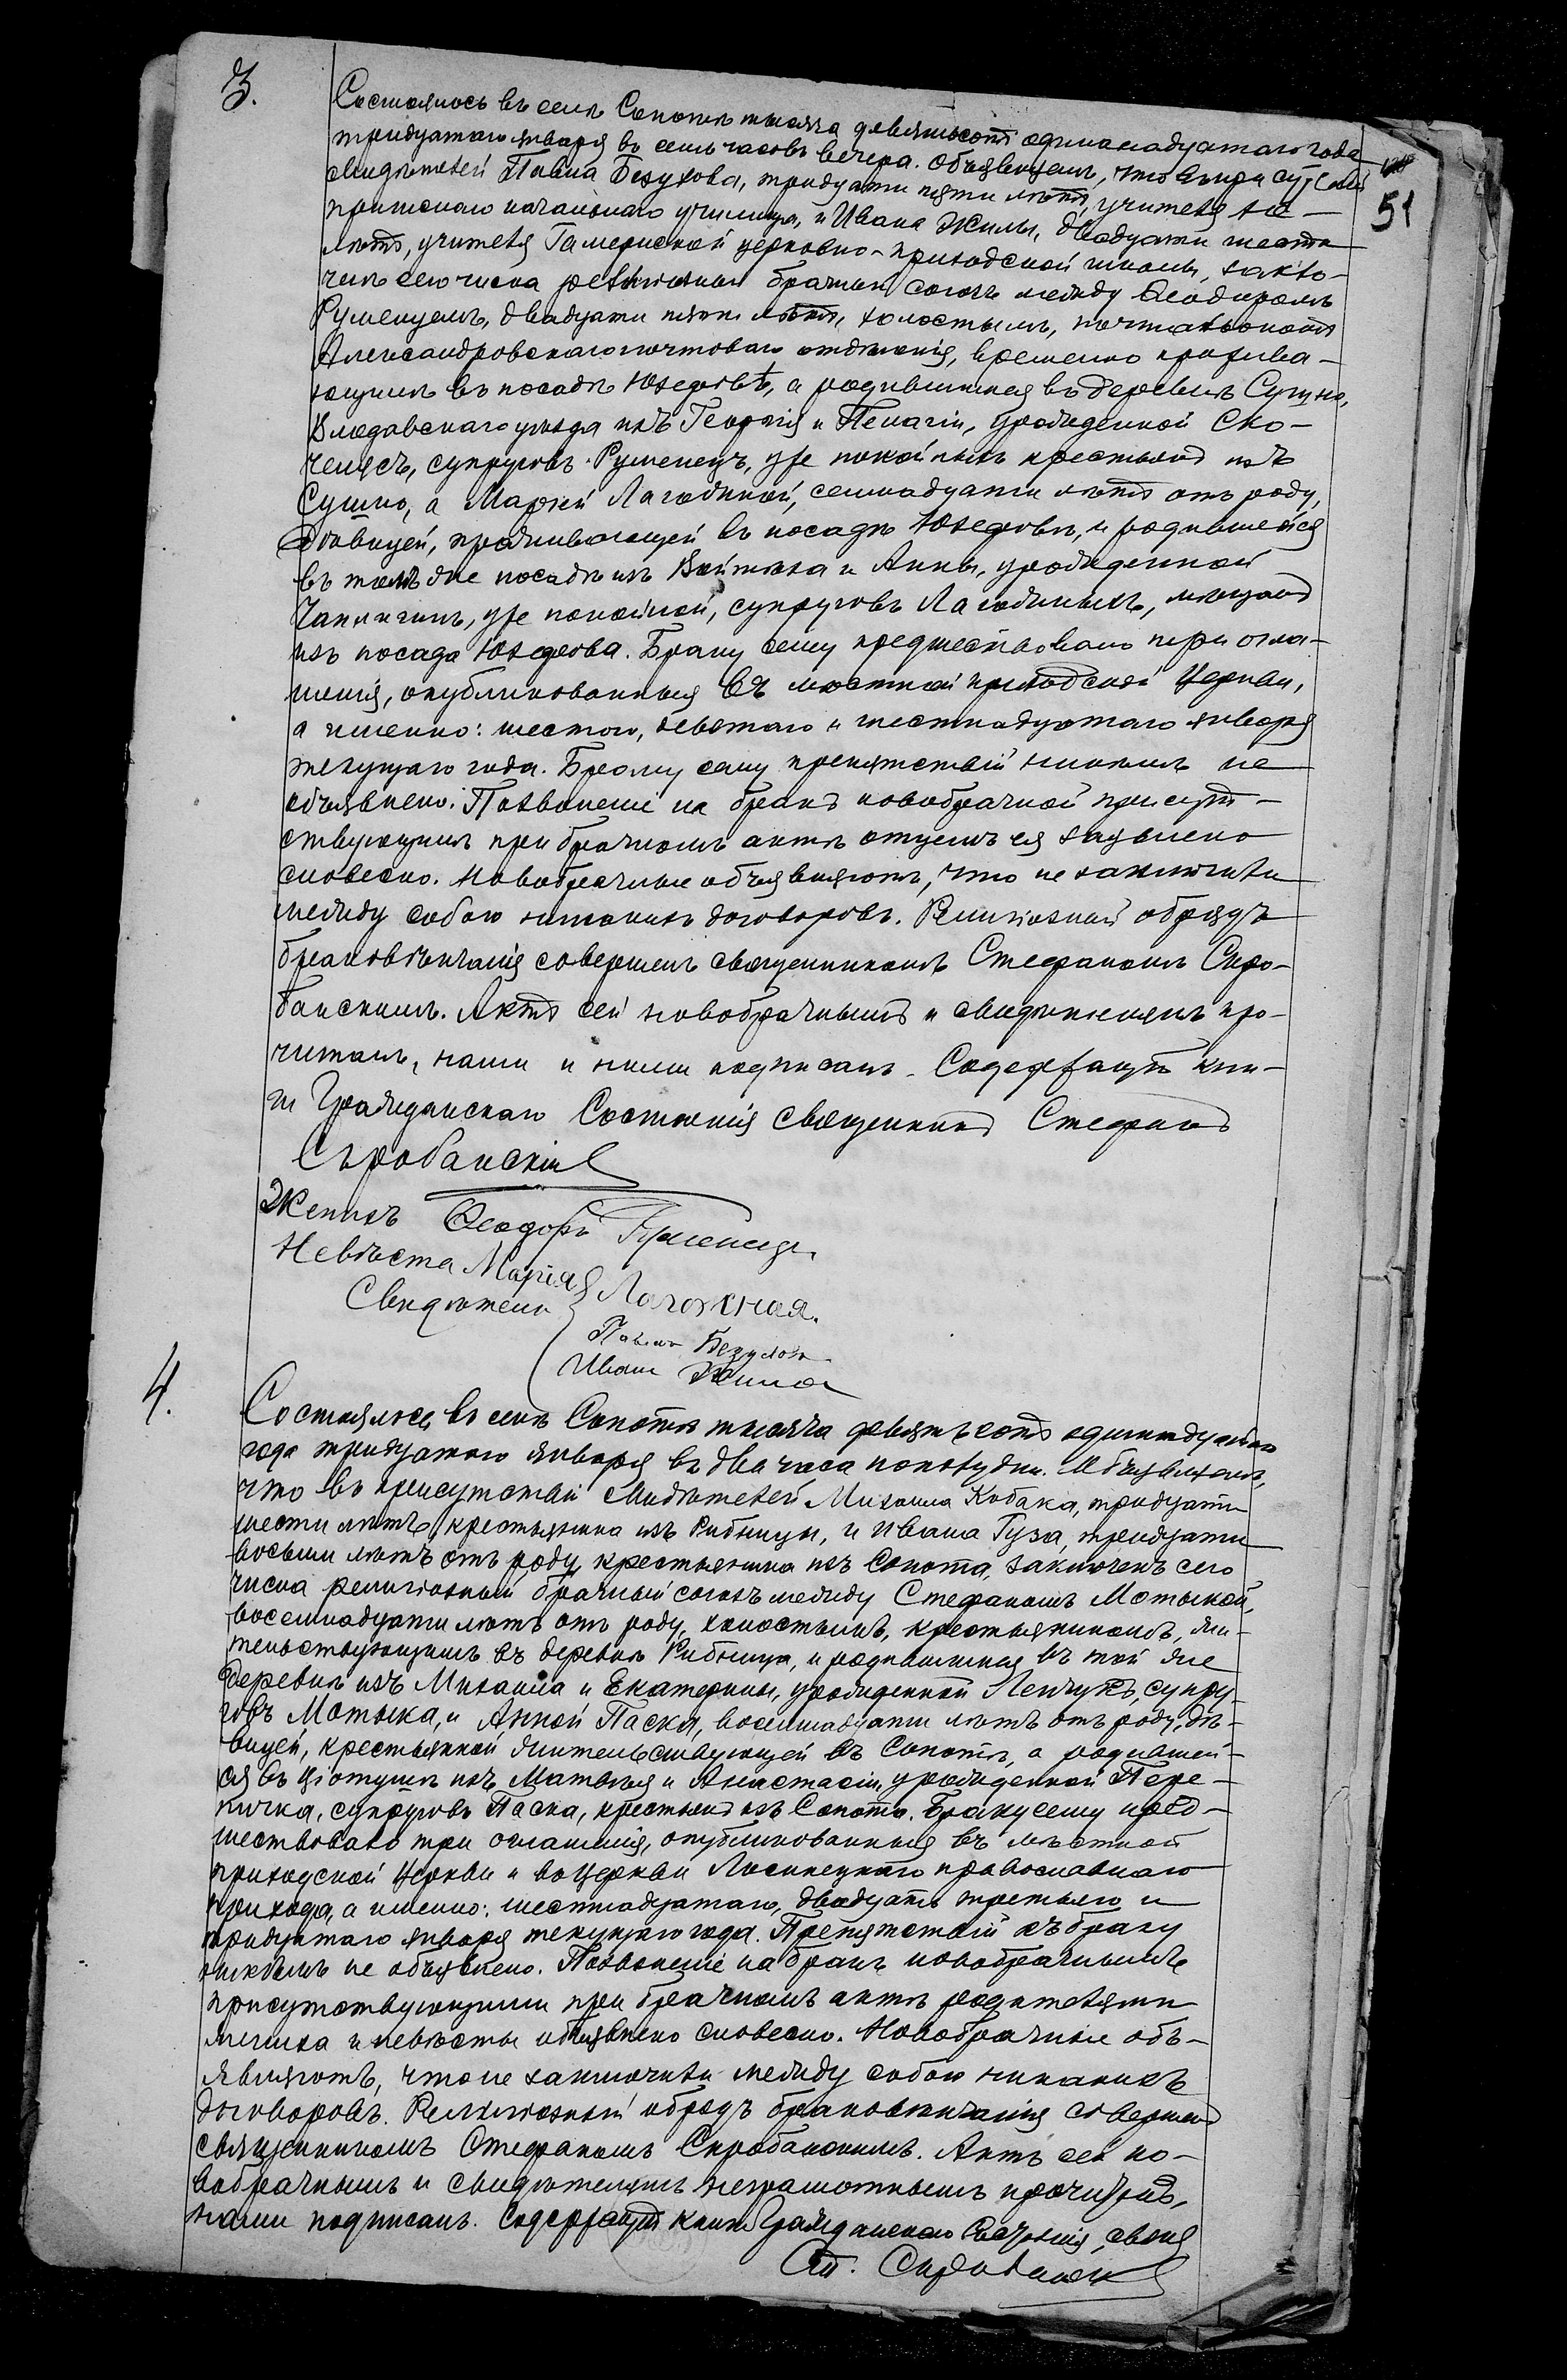 3.
Состоялось въ селѣ Сопотѣ тысяча девятьсотъ одиннадцатаго года
тридцатаго января въ семь часовъ вечера. Объявляемъ, что въ присутствіи
51
свидѣтелей Павла Безухова, тридцати пяти лѣтъ, учителя
начальнаго училища, и Ивана Жилы, двадцати шести
лѣтъ, учителя церковно-приходской школы, заклю-
ченъ сего числа религіозный брачный союзъ между Ѳеодоромъ
Руменцемъ, двадцати пяти лѣтъ, холостымъ, почтальономъ
Александровскаго почтоваго отдѣленія, временно прожива-
ющимъ въ посадѣ Юзефовѣ, а родившимся въ деревнѣ Сушно,
Влодавскаго уѣзда изъ Георгія и Пелагіи, урожденной Ско-
супруговъ Руменецъ, уже покойныхъ крестьянъ изъ
Сушно, а Маріей Лагожной, семнадцати лѣтъ отъ роду,
дѣвицей, проживающей въ посадѣ Юзефовѣ, и родившейся
въ томъ же посадѣ изъ Войтѣха и Анны, урожденной
уже покойной, супруговъ Лагожныхъ, мѣщанъ
изъ посада Юзефова. Браку сему предшествовало три огла-
шенія, опубликованныя въ мѣстной приходской Церкви,
а именно: шестого, девятаго и шестнадцатаго января
текущаго года. Браку сему препятствій никѣмъ не
объявлено. Позволеніе на бракъ новобрачной присут-
ствующимъ при брачномъ актѣ отцемъ ея заявлено
словесно. Новобрачные объявляютъ, что не заключили
между собою никакихъ договоровъ. Религіозный обрядъ
браковѣнчанія совершенъ священникомъ Стефаномъ Скро-
банскимъ. Актъ сей новобрачнымъ и свидѣтелямъ про-
читанъ, нами и ними подписанъ. Содержащій кни-
ги Гражданскаго Состоянія священникъ Стефанъ
Скробанскій
Женихъ Ѳеодоръ Руменецъ.
Невѣста Марія Лагожная.
Свидѣтели
Павелъ Безуховъ
Иванъ Жила
4.
Состоялось въ селѣ Сопотѣ тысяча девятьсотъ одиннадцатаго
года тридцатаго января въ два часа пополудни. Объявляемъ,
что въ присутствіи свидѣтелей Михаила Кобака, тридцати
шести лѣтъ, крестьянина изъ Рибницы, и Ивана Гуза, тридцати
восьми лѣтъ отъ роду, крестьянина изъ Сопота, заключенъ сего
числа религіозный брачный союзъ между Стефаномъ Мотыкой,
восемнадцати лѣтъ отъ роду, холостымъ, крестьяниномъ, жи-
тельствующимъ въ деревнѣ Рибница, и родившимся въ той же
деревнѣ изъ Михаила и Екатерины, урожденной Левчукъ, супру-
говъ Мотыка, и Анной Паска, восемнадцати лѣтъ отъ роду, дѣ-
вицей, крестьянкой жительствующей въ Сопотѣ, а родившей-
ся въ изъ Матвѣя и Анастасіи, урожденной Пере-
пичка, супруговъ Паска, крестьянъ изъ Сопота. Браку сему пред-
шествовало три оглашенія, опубликованныя въ мѣстной
приходской Церкви и въ Церкви Лосинецкаго православнаго
прихода, а именно: шестнадцатаго, двадцать третьяго и
тридцатаго января текущаго года. Препятствій къ браку
никѣмъ не объявлено. Позволеніе на бракъ новобрачнымъ
присутствующими при брачномъ актѣ родителями
жениха и невѣсты объявлено словесно. Новобрачные объ-
являютъ, что не заключили между собою никакихъ
договоровъ. Религіозный обрядъ браковѣнчанія совершенъ
священникомъ Стефаномъ Скробанскимъ. Актъ сей но-
вобрачнымъ и свидѣтелямъ неграмотнымъ прочитанъ,
нами подписанъ. Содержащій книги Гражданскаго Состоянія, свящ
Ст. Скробанскій